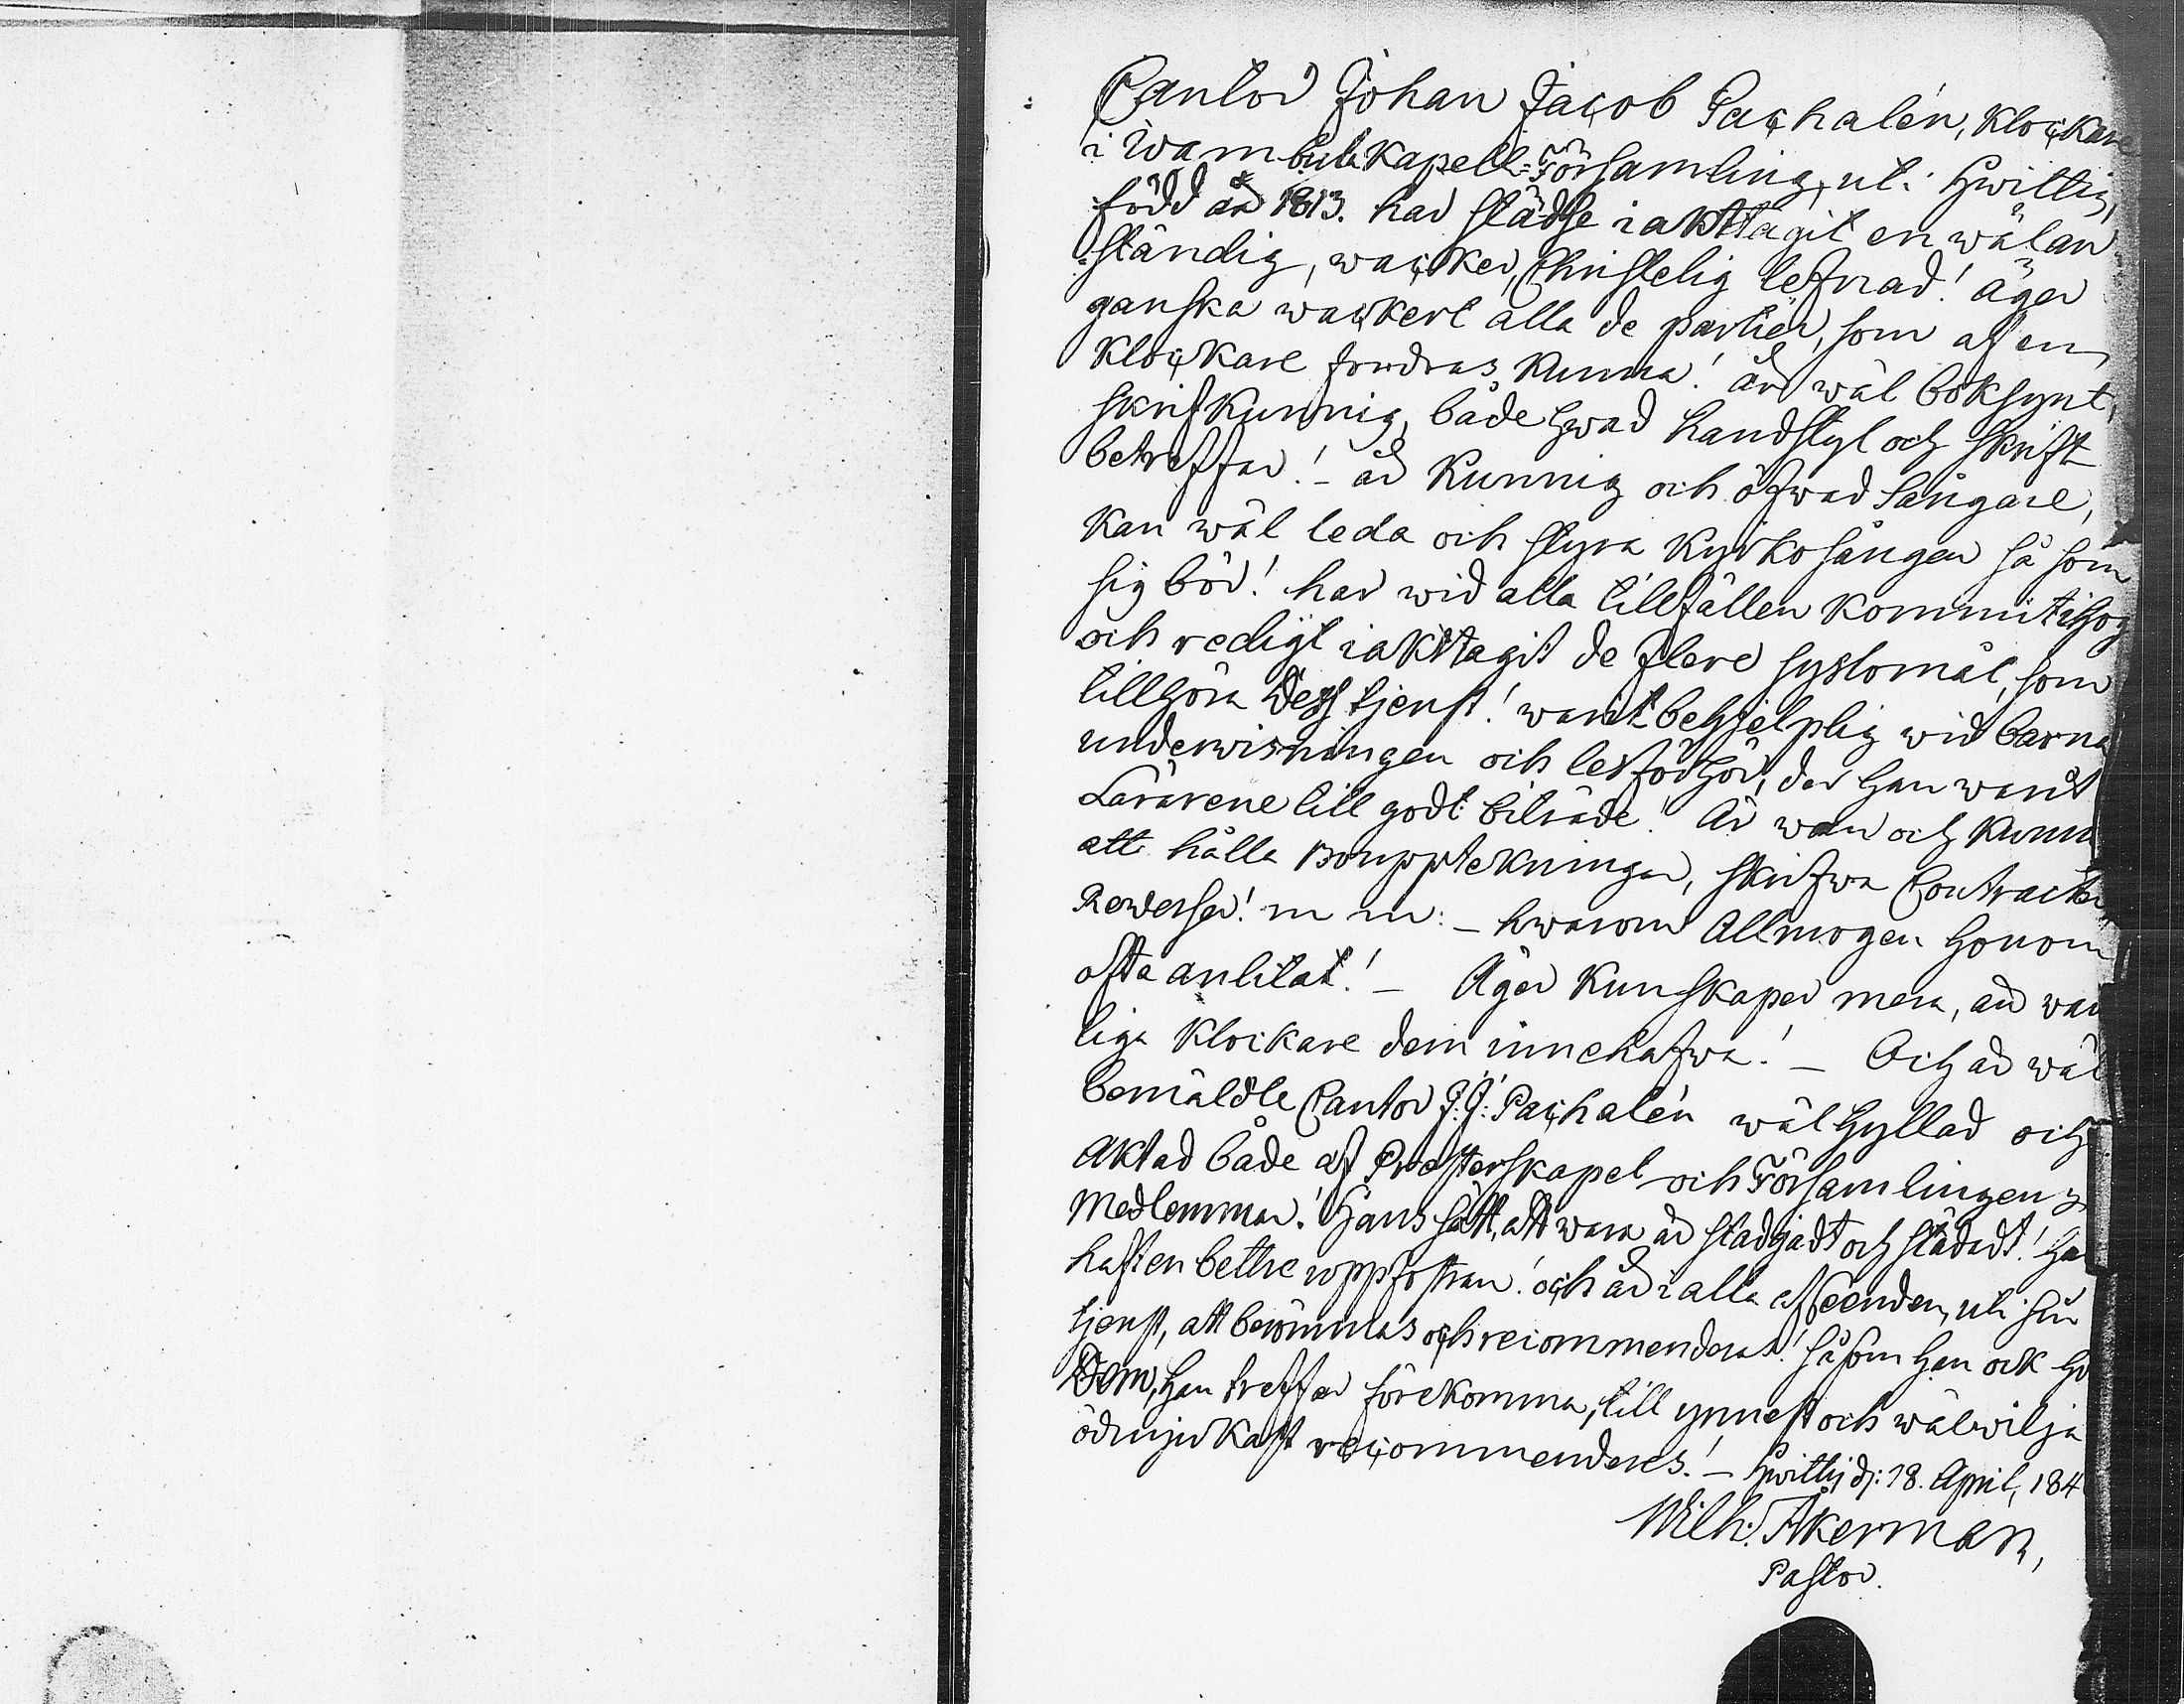 Cantor Johan Jacob Pacchalén, Klockare
i Wambula Kapell-Församling, uti Hwittis,
född år 1813. har städse iakttagit en wälan
=ständig, wacker, Christelig lefnad! äger
ganska wackert alla de partier, som af en
Klockare fordras kunna! är wäl boksynt,
skrifkunnig, både hwad handstyl och skrift
betreffar! – är kunnig och öfwad Sångare,
kan wäl leda och styra Kyrkosången så som
sig bör! har wid alla tillfällen kommit ihog
och redigt iakttagit de flere syslomål, som
tillhöra dess tjenst! warit behjelplig wid barna
underwisningen och lesförhör, der han warit
Lärarene till godt biträde! Är wan och kunni
att hålla Bouppteckningar, skrifwa Contracter
Rewerser! m m: – hwarom Allmogen honom
ofta anlitat! – Äger Kunskaper mera, än wan
liga Klockare dem innehafwa! – Och är wäl
bemäldte Cantor J:J: Pacchalén wäl hyllad och
aktad både af Presterskapet och Församlingens
Medlemmar! Hans sätt, att wara är stadgadt och städadt! Ha
haft en bettre uppfostran! och är i alla afseenden, uti sin
tjenst, att berömmas och recommenderas! så som han ock ho
Dem, han treffar förekomma, till ynnest och wälwilja
ödmjukast recommenderes! – Hwittis d: 18. April, 184
Wilh: Åkerman,
Pastor.